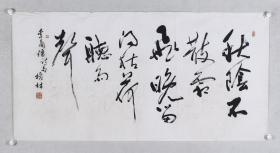 秋陰不
散霜
飛晚留
得枯荷
聽雨
聲
李商隱詩